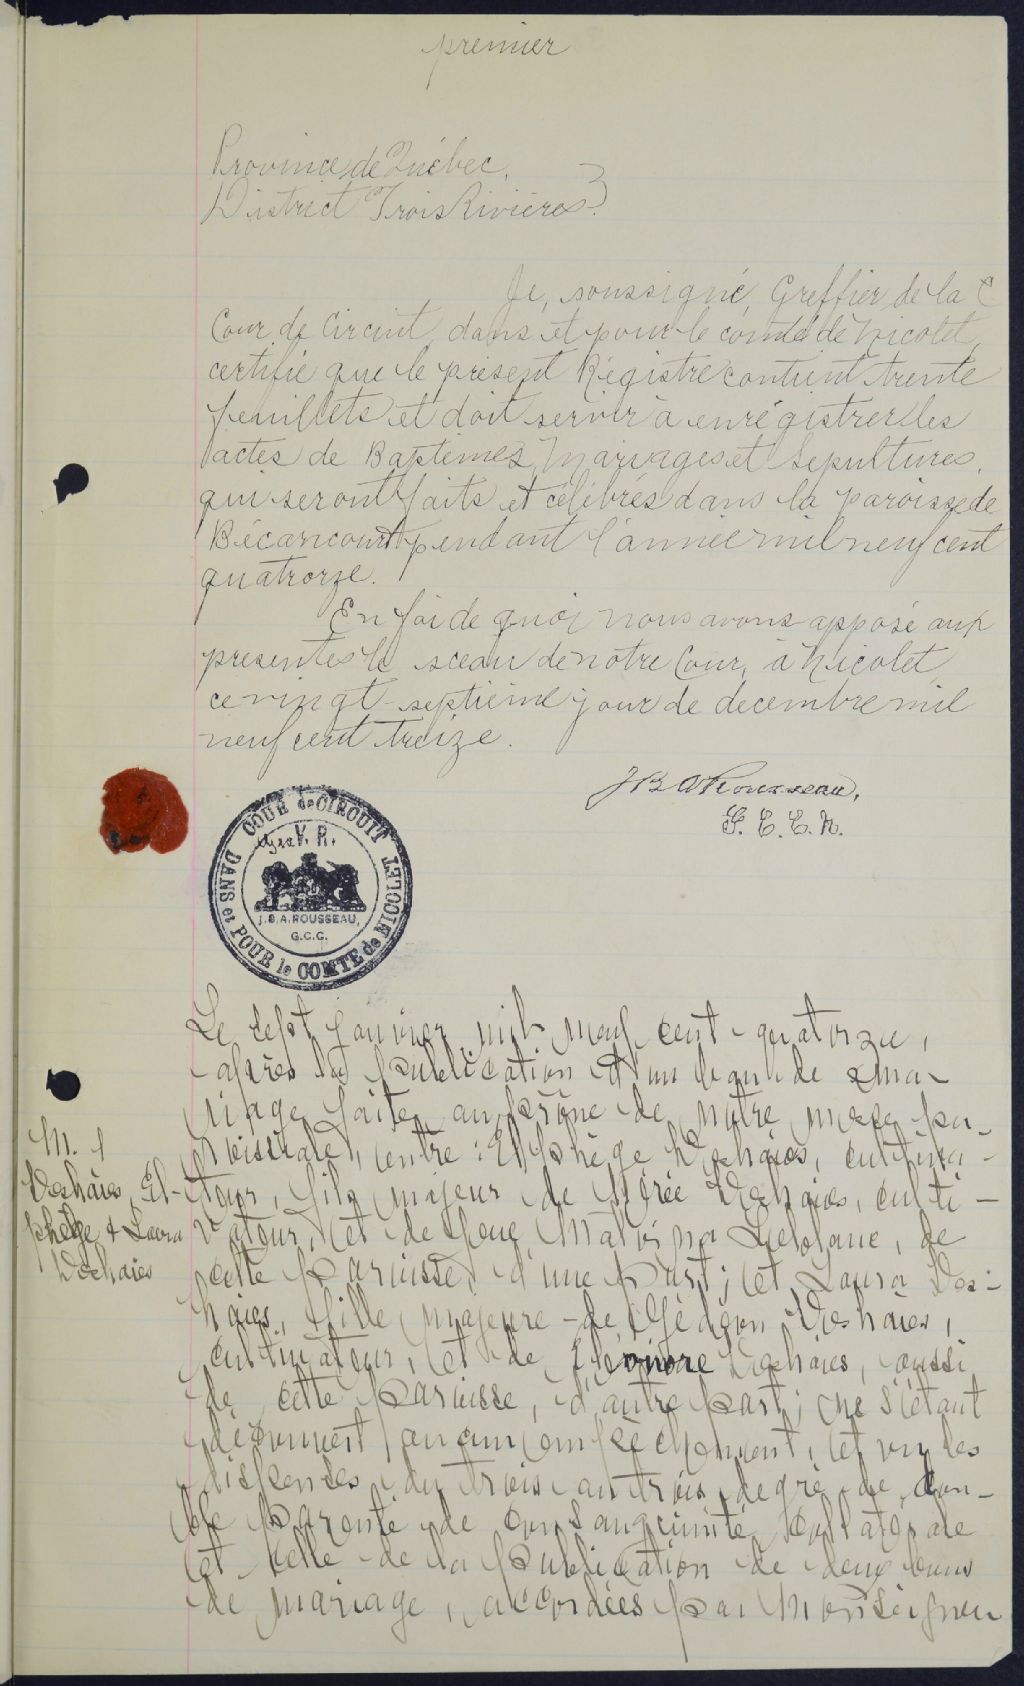 premier
Province de Québec,
District Trois Rivières.
Je, soussigné, Greffier de la C
Cour de Circuit, dans et pour le comté de Nicolet,
certifie que le présent Régistre contient trente
feuillets et doit servir à enrégistrer les
actes de Baptêmes, Mariages et Sépultures,
qui seront faits et célébrés dans la paroisse de
Bécancourt pendant l'année mil neuf cent
quatrorze.
En foi de quoi, nous avons apposé aux
presentes le sceau de notre Cour, à Nicolet,
ce vingt-septième jour de decembre mil
neuf cent treize.
J B A Rousseau,
G. C. C. N.
COUR de CIRCUIT
DANS et POUR le COMTE de NICOLET
V. R.
J.B.A. ROUSSEAU,
G.C.C.
Le sept janvier mil neuf cent-quatorze,
après la publication d'un ban de ma-
riage faite au prône de notre messe pa-
roissiale, entre: Elphège Deshaies, cultiva-
teur, fils majeur de Deshaies, culti-
vateur, et de feue Malvina Leblanc, de
cette paroisse, d'une part; et Laura Des-
haies, fille majeure de Gédéon Deshaies,
cultivateur, et de Deshaies, aussi
de cette paroisse, d'autre part; ne s'étant
découvert aucun empêchement, et vu les
dispenses du trois au trois degré de dou-
ble parenté de consanguinité collatérale
et celle de la publication de deux bans
de mariage, accordées par Monseigneu
M. 1
Deshaies, El-
phège & Laura
Deshaies